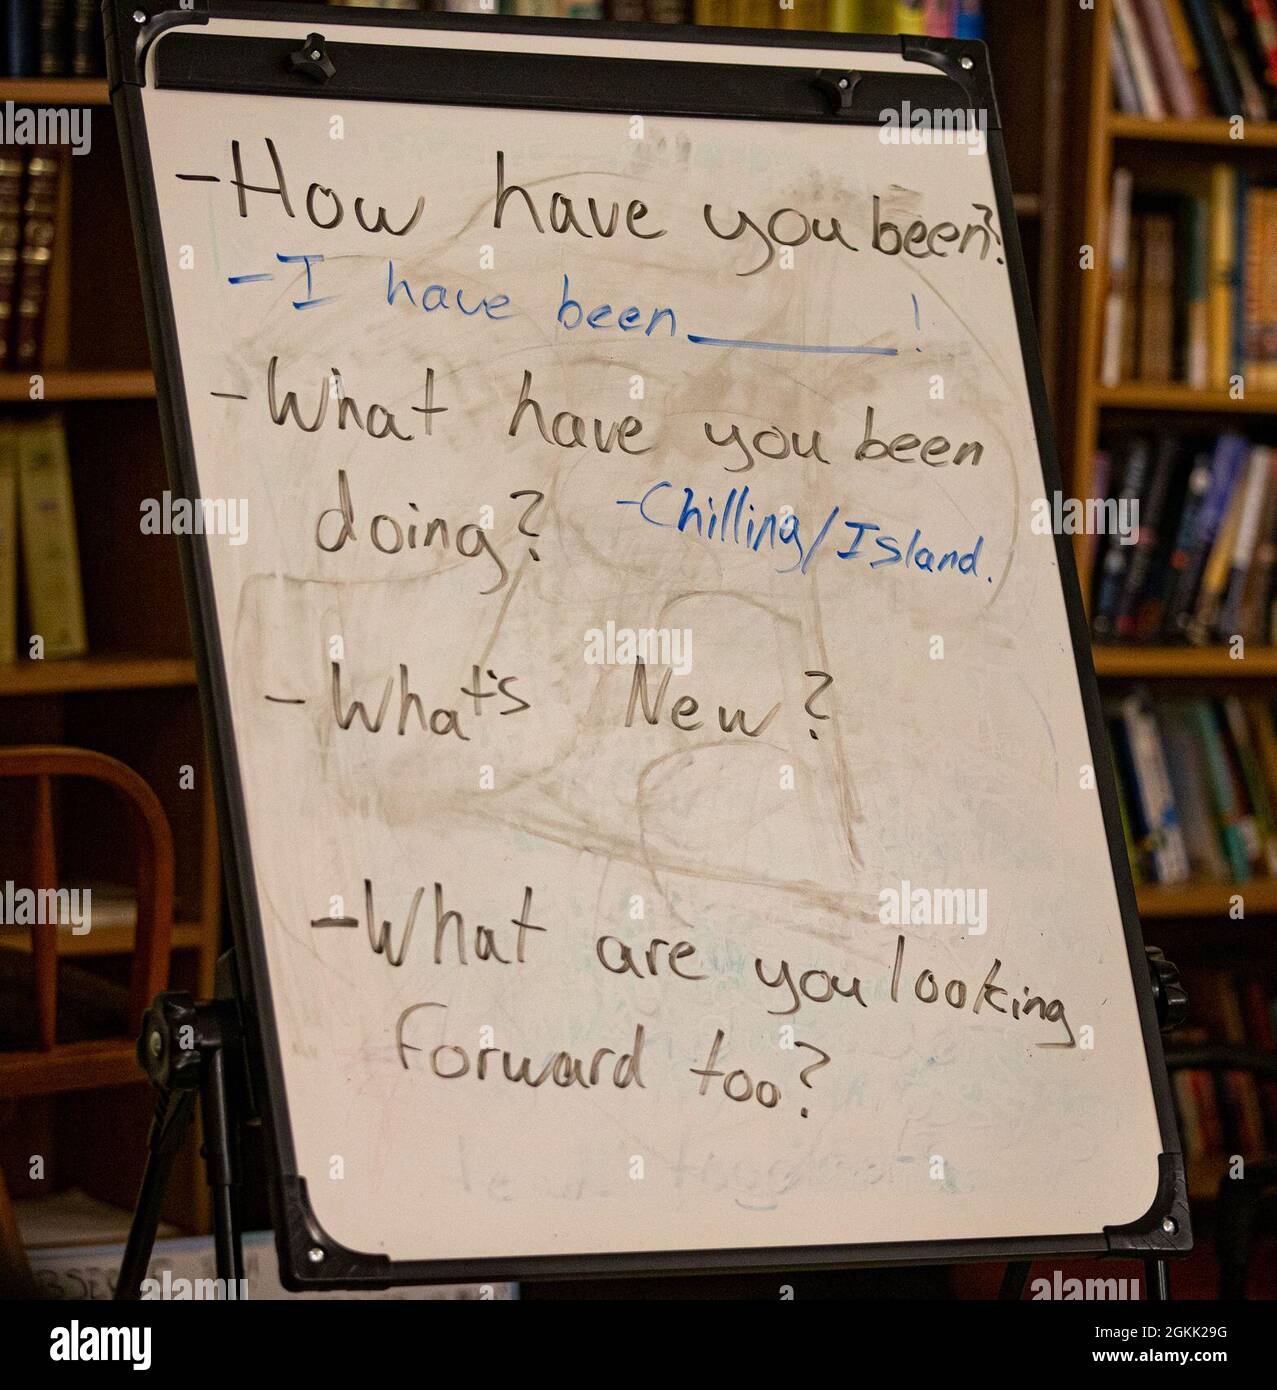 - How have you been?
- I have been ______!
- What have you been
doing? - Chilling/Island.
- What's New?
- What are you looking
forward too?
alamy
Image ID: 2GKK29G
www.alamy.com